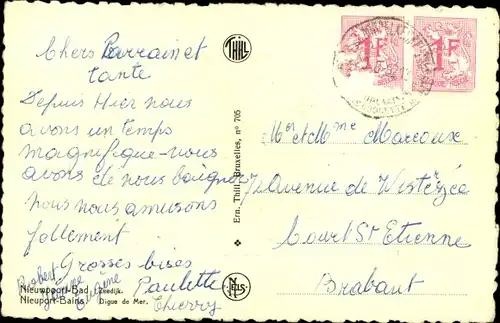 Chers Parrain et
tante
Depuis Hier nous
avons un temps
magnifique - nous
avons été nous baigner
nous nous amusons
follement
Grosses bises
Robert
Paulette
Thierry
Nieuwpoort-Bad Zeedijk.
Nieuport-Bains Digue de Mer.
THILL
Ern. Thill, Bruxelles, nº 705
NELS
1F 1F
Mr et Mme Marcoux
71 Avenue de Wisterzée
Court St Etienne
Brabant